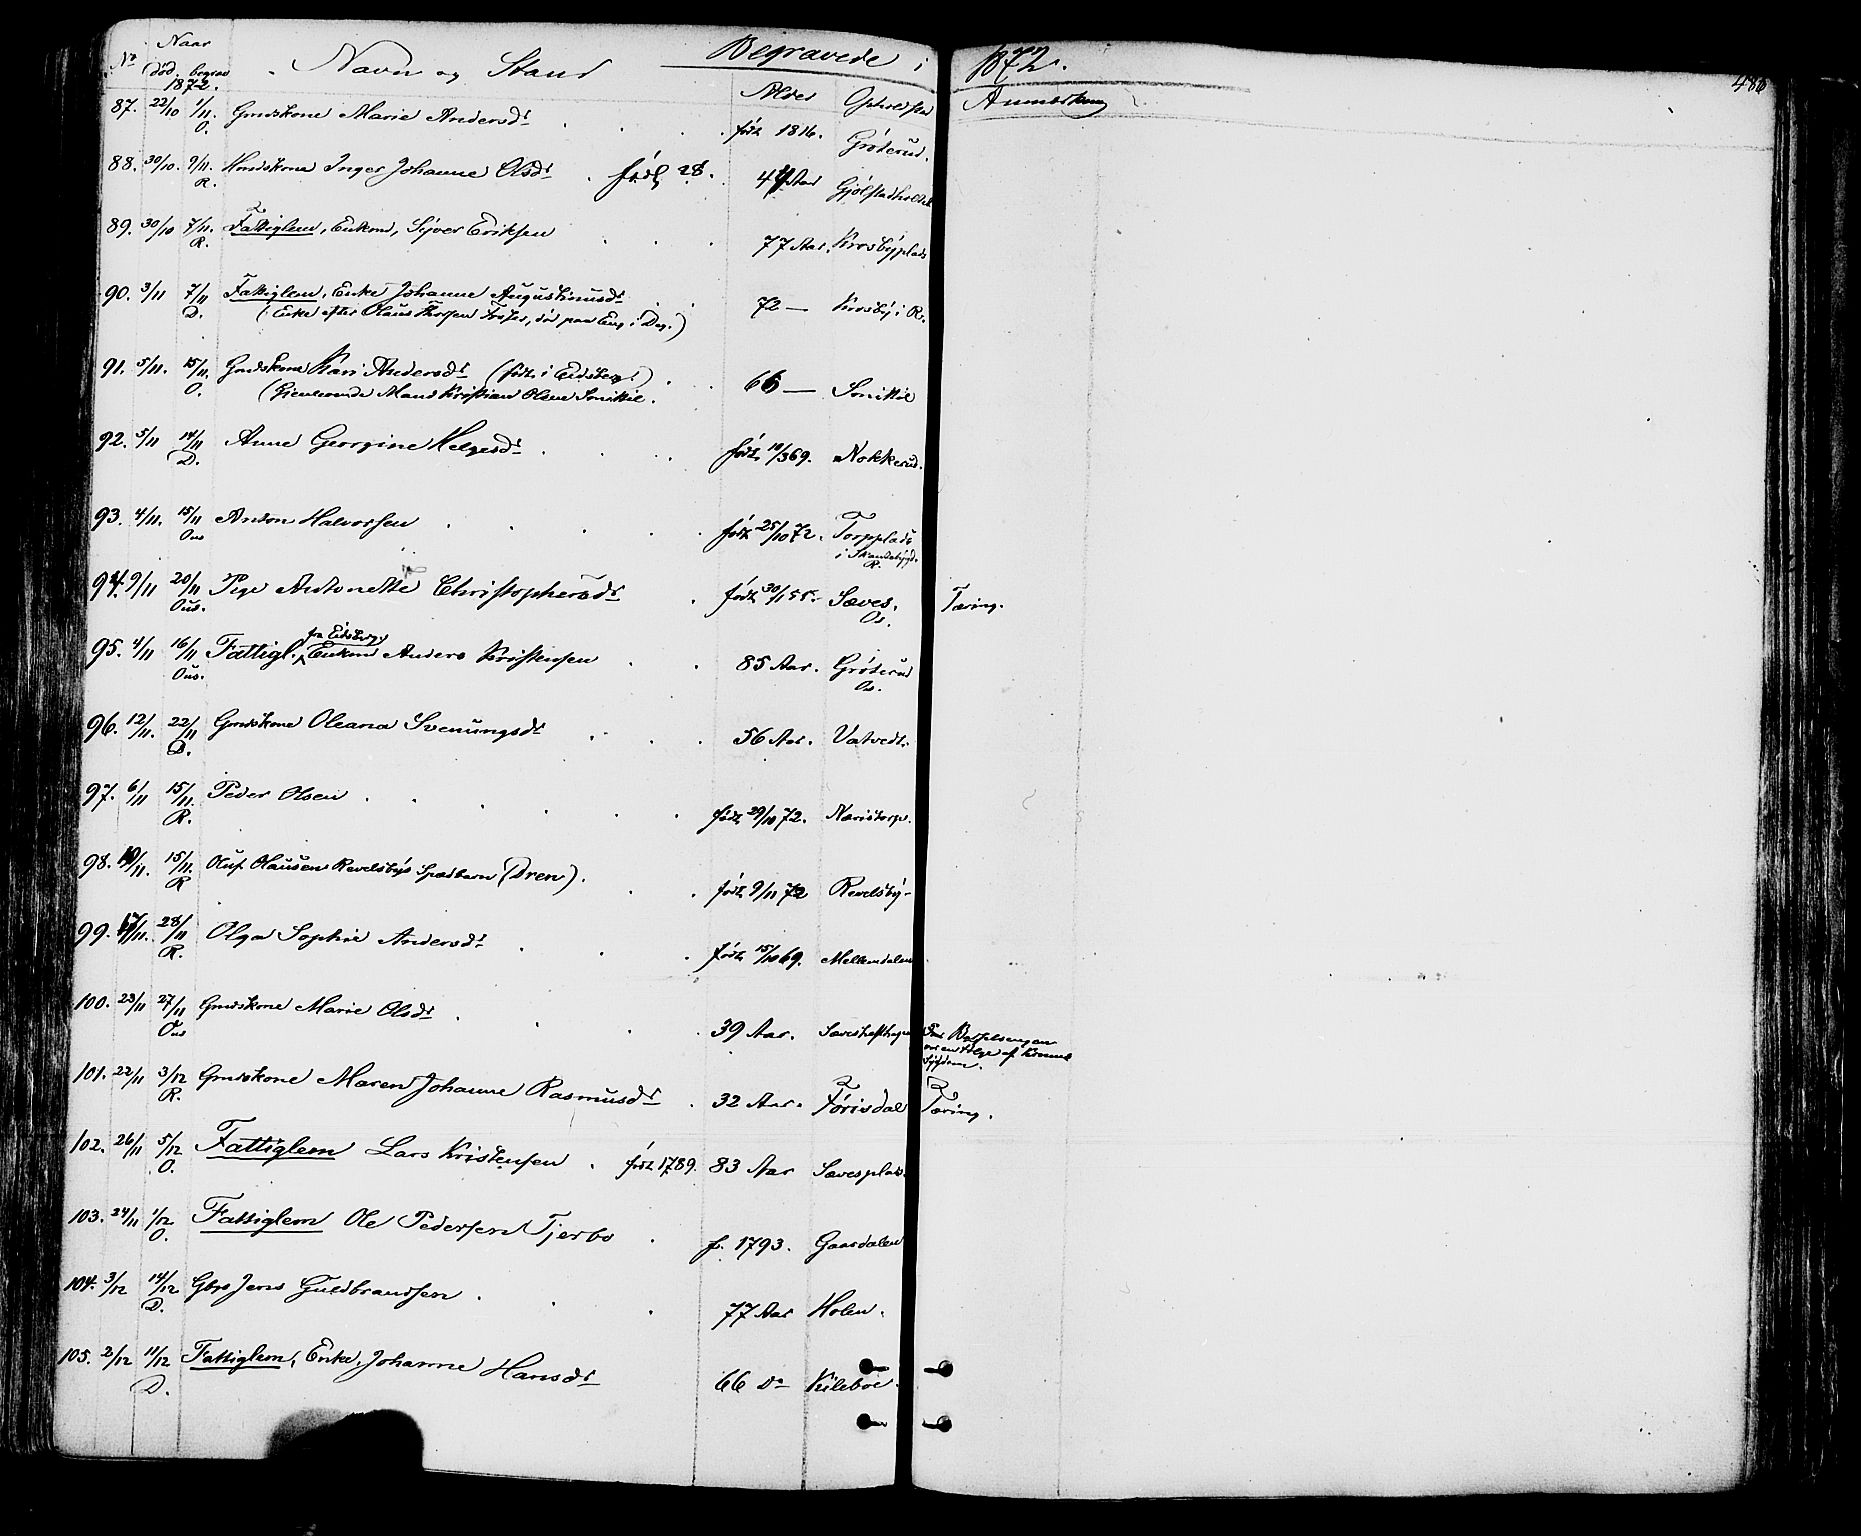 Begravede i 1872.
486
No Naar død. begrav 1872. Navn og Stand Alder Opholdssted Anmærkning
87. 22/10 1/11. O. Gmdskone Marie Andersdr født 1816. Grøterud.
88. 30/10. 9/11. R. Hmdskone Inger Johanne Olsdr. født 28. 44 Aar Gjølstadholdet
89. 30/10 7/11. R. Fattiglem, Enkem, Syver Eriksen 77 Aar. Krosbyplads
90. 3/11 7/11 D. Fattiglem, Enke Johanne Augustinusdr 72 — Krosby i R.
(Enke efter Olaus Thorsen Fosser, død paa Eng i Deg.)
91. 5/11. 15/11. O. Gmdskone Kari Andersdr (født i Eidsberg) 66 — Sonikil
(Gjenlevende Mand Kristian Olsen Sonikil.
92. 5/11 14/11 D. Anne Georgine Helgesdr født 10/3 69. Nokkerud.
93. 4/11. 15/11 Ous Anton Halvorsen født 25/10 72. Torpplads
i Skandsbygd. R.
94. 9/11 20/11 Ous. Pige Antonette Christophersdr født 30/1 55. Sæves. Os. Tæring.
95. 4/11 16/11 Ous. Fattigl. fra Eidsberg, Enkem Anders Kristensen 85 Aar. Grøterud Os.
96. 12/11. 22/11 D. Gmdskone Oleana Svenungsdr 56 Aar. Vatvedt.
97. 6/11 15/11. R. Peder Olsen født 29/10 72. Næristorp.
98. 10/11. 15/11. R Oluf Olausen Revelsbys Spædbarn (Dreng). født 9/11 72 Revelsby
99. 17/11. 28/11 R. Olga Sophie Andersdr født 15/10 69. Mellemdalen
100. 23/11 27/11 Ous Gmdskone Marie Olsdr 39 Aar. Sæveshefthagen Død i Barselsengen
var en Følge af
101. 22/11 3/12 R. Gmdskone Maren Johanne Rasmusdr 32 Aar. Førisdal Tæring.
102. 26/11 5/12 O. Fattiglem Lars Kristensen. født 1789. 83 Aar Sævesplads.
103. 24/11 1/12 O. Fattiglem Ole Pedersen Tjerbo f. 1793. Gaasdalen
104. 3/12 14/12 D. Gbr. Jens Guldbrandsen. 77 Aar Holen.
105. 2/12 11/12 D. Fattiglem, Enke, Johanne Hansdr 66 Do Kileboe.